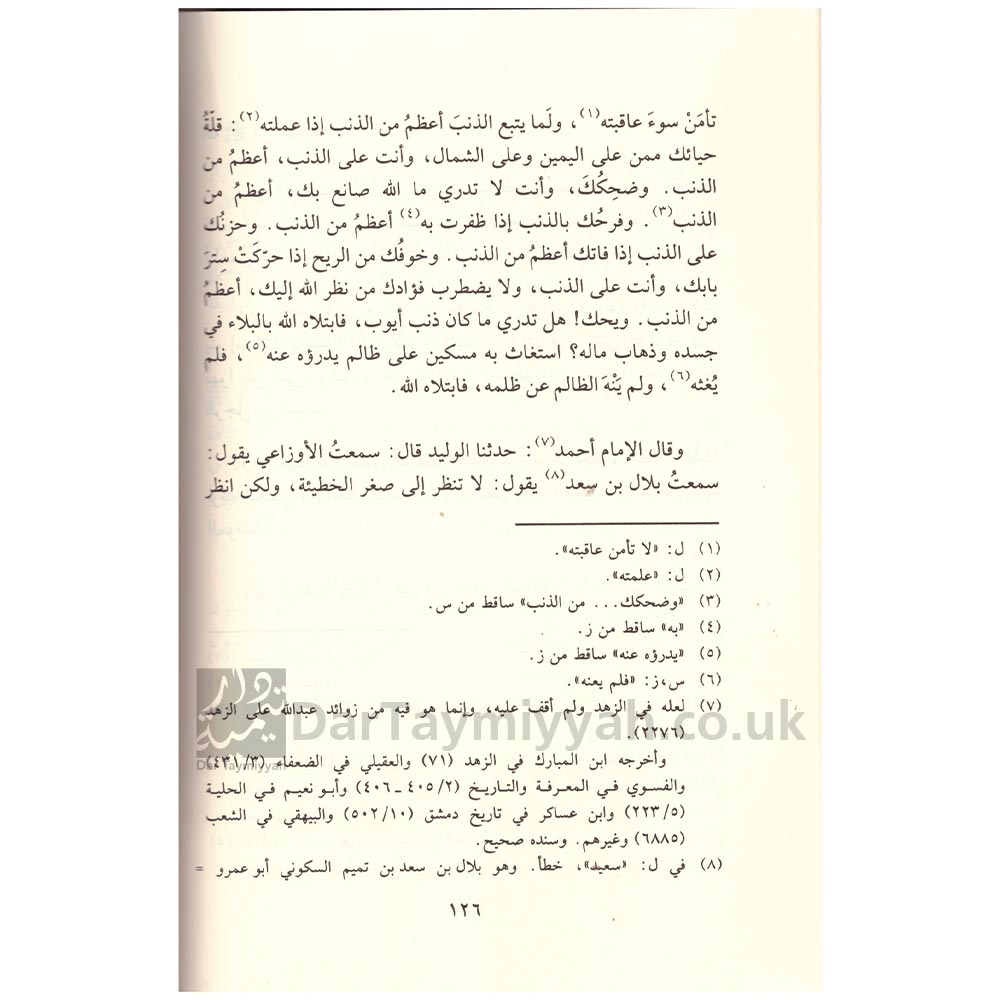 تأمَنْ سوءَ عاقبته(١)، ولَما يتبع الذنبَ أعظمُ من الذنب إذا عملته(٢): قلّةُ
حيائك ممن على اليمين وعلى الشمال، وأنت على الذنب، أعظمُ من
الذنب. وضحِكُكَ، وأنت لا تدري ما الله صانع بك، أعظمُ من
الذنب(٣). وفرحُك بالذنب إذا ظفرت به(٤) أعظمُ من الذنب. وحزنُك
على الذنب إذا فاتك أعظمُ من الذنب. وخوفُك من الريح إذا حرّكَتْ سِترَ
بابك، وأنت على الذنب، ولا يضطرب فؤادك من نظر الله إليك، أعظمُ
من الذنب. ويحك! هل تدري ما كان ذنب أيوب، فابتلاه الله بالبلاء في
جسده وذهاب ماله؟ استغاث به مسكين على ظالم يدرؤه عنه(٥)، فلم
يُغثه(٦)، ولم يَنْهَ الظالم عن ظلمه، فابتلاه الله.
وقال الإمام أحمد(٧): حدثنا الوليد قال: سمعتُ الأوزاعي يقول:
سمعتُ بلال بن سعد(٨) يقول: لا تنظر إلى صغر الخطيئة، ولكن انظر
(١) ل: «لا تأمن عاقبته».
(٢) ل: «علمته».
(٣) «وضحكك... من الذنب» ساقط من س.
(٤) «به» ساقط من ز.
(٥) «يدرؤه عنه» ساقط من ز.
(٦) س،ز: «فلم يعنه».
(٧) لعله في الزهد ولم أقف عليه، وإنما هو فيه من زوائد عبدالله على الزهد
(٢٢٧٦).
وأخرجه ابن المبارك في الزهد (٧١) والعقيلي في الضعفاء (٣/ ٤٣١)
والفسوي في المعرفة والتاريخ (٢/ ٤٠٥ ـ ٤٠٦) وأبو نعيم في الحلية
(٥/ ٢٢٣) وابن عساكر في تاريخ دمشق (١٠/ ٥٠٢) والبيهقي في الشعب
(٦٨٨٥) وغيرهم. وسنده صحيح.
(٨) في ل: «سعيد»، خطأ. وهو بلال بن سعد بن تميم السكوني أبو عمرو =
١٢٦
دار تيمية
Dar Taymiyyah
DarTaymiyyah.co.uk